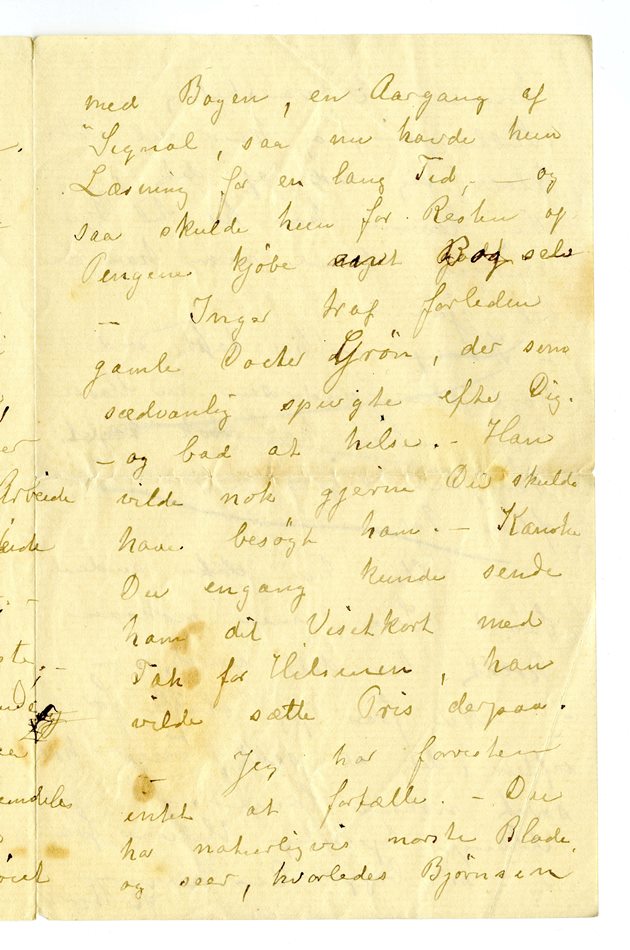 med Bogen, en Aargang af
"Signal, saa nu havde hun
Læsning for en lang Tid, — og
saa skulde hun for Resten af
Pengene kjøbe selv
— Inger traf forleden
gamle Docter Grön, der som
sædvanlig spurgte efter Dig.
— og bad at hilse. — Han
vilde nok gjerne Du skulde
have besögt ham. — Kanske
Du engang kunde sende
ham dit Visitkort med
Tak for Hilsenen, han
vilde sætte Pris derpaa.
— Jeg har forresten
intet at fortælle. — Du
har naturligvis norske Blade,
og seer, hvorledes Bjørnsen
Arbeide